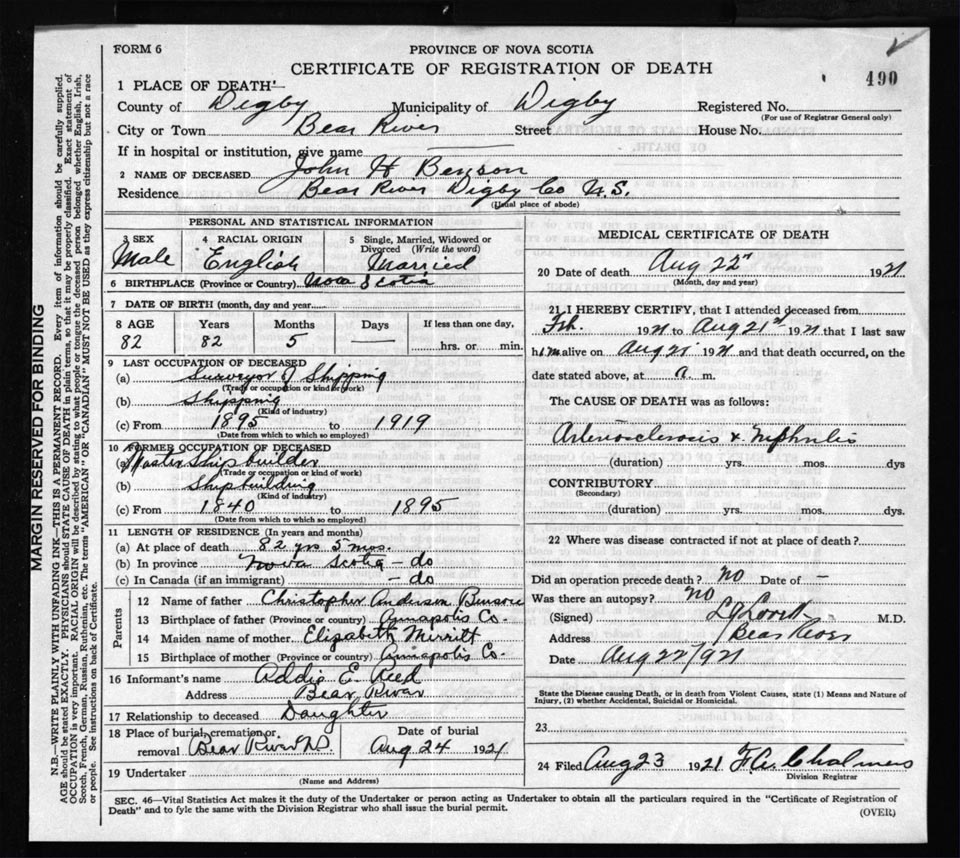 FORM 6
PROVINCE OF NOVA SCOTIA
CERTIFICATE OF REGISTRATION OF DEATH
490
1 PLACE OF DEATH—
County of Digby Municipality of Digby Registered No.
(For use of Registrar General only)
City or Town Bear River Street House No.
If in hospital or institution, give name
2 NAME OF DECEASED John H Benson
Residence Bear River Digby Co N.S.
(Usual place of abode)
PERSONAL AND STATISTICAL INFORMATION
3 SEX 4 RACIAL ORIGIN 5 Single, Married, Widowed or
Divorced (Write the word)
Male English Married
6 BIRTHPLACE (Province or Country) Nova Scotia
7 DATE OF BIRTH (month, day and year)
8 AGE Years Months Days If less than one day,
82 82 5 — hrs. or min.
9 LAST OCCUPATION OF DECEASED
(a) Surveyor of Shipping
(Trade or occupation or kind of work)
(b) Shipping
(Kind of industry)
(c) From 1895 to 1919
(Date from which to which so employed)
10 FORMER OCCUPATION OF DECEASED
(a) Master Shipbuilder
(Trade or occupation or kind of work)
(b) Shipbuilding
(Kind of industry)
(c) From 1840 to 1895
(Date from which to which so employed)
11 LENGTH OF RESIDENCE (In years and months)
(a) At place of death 82 yrs 5 mos.
(b) In province Nova Scotia — do
(c) In Canada (if an immigrant) — do
Parents
12 Name of father Christopher Anderson Benson
13 Birthplace of father (Province or country) Annapolis Co.
14 Maiden name of mother Elizabeth Merritt
15 Birthplace of mother (Province or country) Annapolis Co.
16 Informant's name Addie E. Reed
Address Bear River
17 Relationship to deceased Daughter
18 Place of burial, cremation or Date of burial
removal Bear River N.S. Aug 24 1921
19 Undertaker
(Name and Address)
MEDICAL CERTIFICATE OF DEATH
20 Date of death Aug 22nd 1921
(Month, day and year)
21 I HEREBY CERTIFY, that I attended deceased from
Feb. 1921 to Aug 21st 1921 that I last saw
him alive on Aug 21 1921 and that death occurred, on the
date stated above, at a. m.
The CAUSE OF DEATH was as follows:
Arteriosclerosis & Nephritis
(duration) yrs. mos. dys
CONTRIBUTORY
(Secondary)
(duration) yrs. mos. dys.
22 Where was disease contracted if not at place of death?
Did an operation precede death? No Date of —
Was there an autopsy? No
(Signed) L J Lovett M.D.
Address Bear River
Date Aug 22/921
State the Disease causing Death, or in death from Violent Causes, state (1) Means and Nature of
Injury, (2) whether Accidental, Suicidal or Homicidal.
23
24 Filed Aug 23 1921 F. W. Chalmers
Division Registrar
SEC. 46—Vital Statistics Act makes it the duty of the Undertaker or person acting as Undertaker to obtain all the particulars required in the "Certificate of Registration of
Death" and to fyle the same with the Division Registrar who shall issue the burial permit.
(OVER)
MARGIN RESERVED FOR BINDING
N.B.—WRITE PLAINLY WITH UNFADING INK—THIS IS A PERMANENT RECORD. Every item of information should be carefully supplied.
AGE should be stated EXACTLY. PHYSICIANS should STATE CAUSE OF DEATH in plain terms, so that it may be properly classified. Exact statement of
OCCUPATION is very important. RACIAL ORIGIN will be described by stating to what people or tongue the deceased person belonged whether English, Irish,
Scotch, French, German, Russian, Ruthenian, etc. The terms "AMERICAN" OR "CANADIAN" MUST NOT BE USED as they express citizenship but not a race
or people. See instructions on back of Certificate.